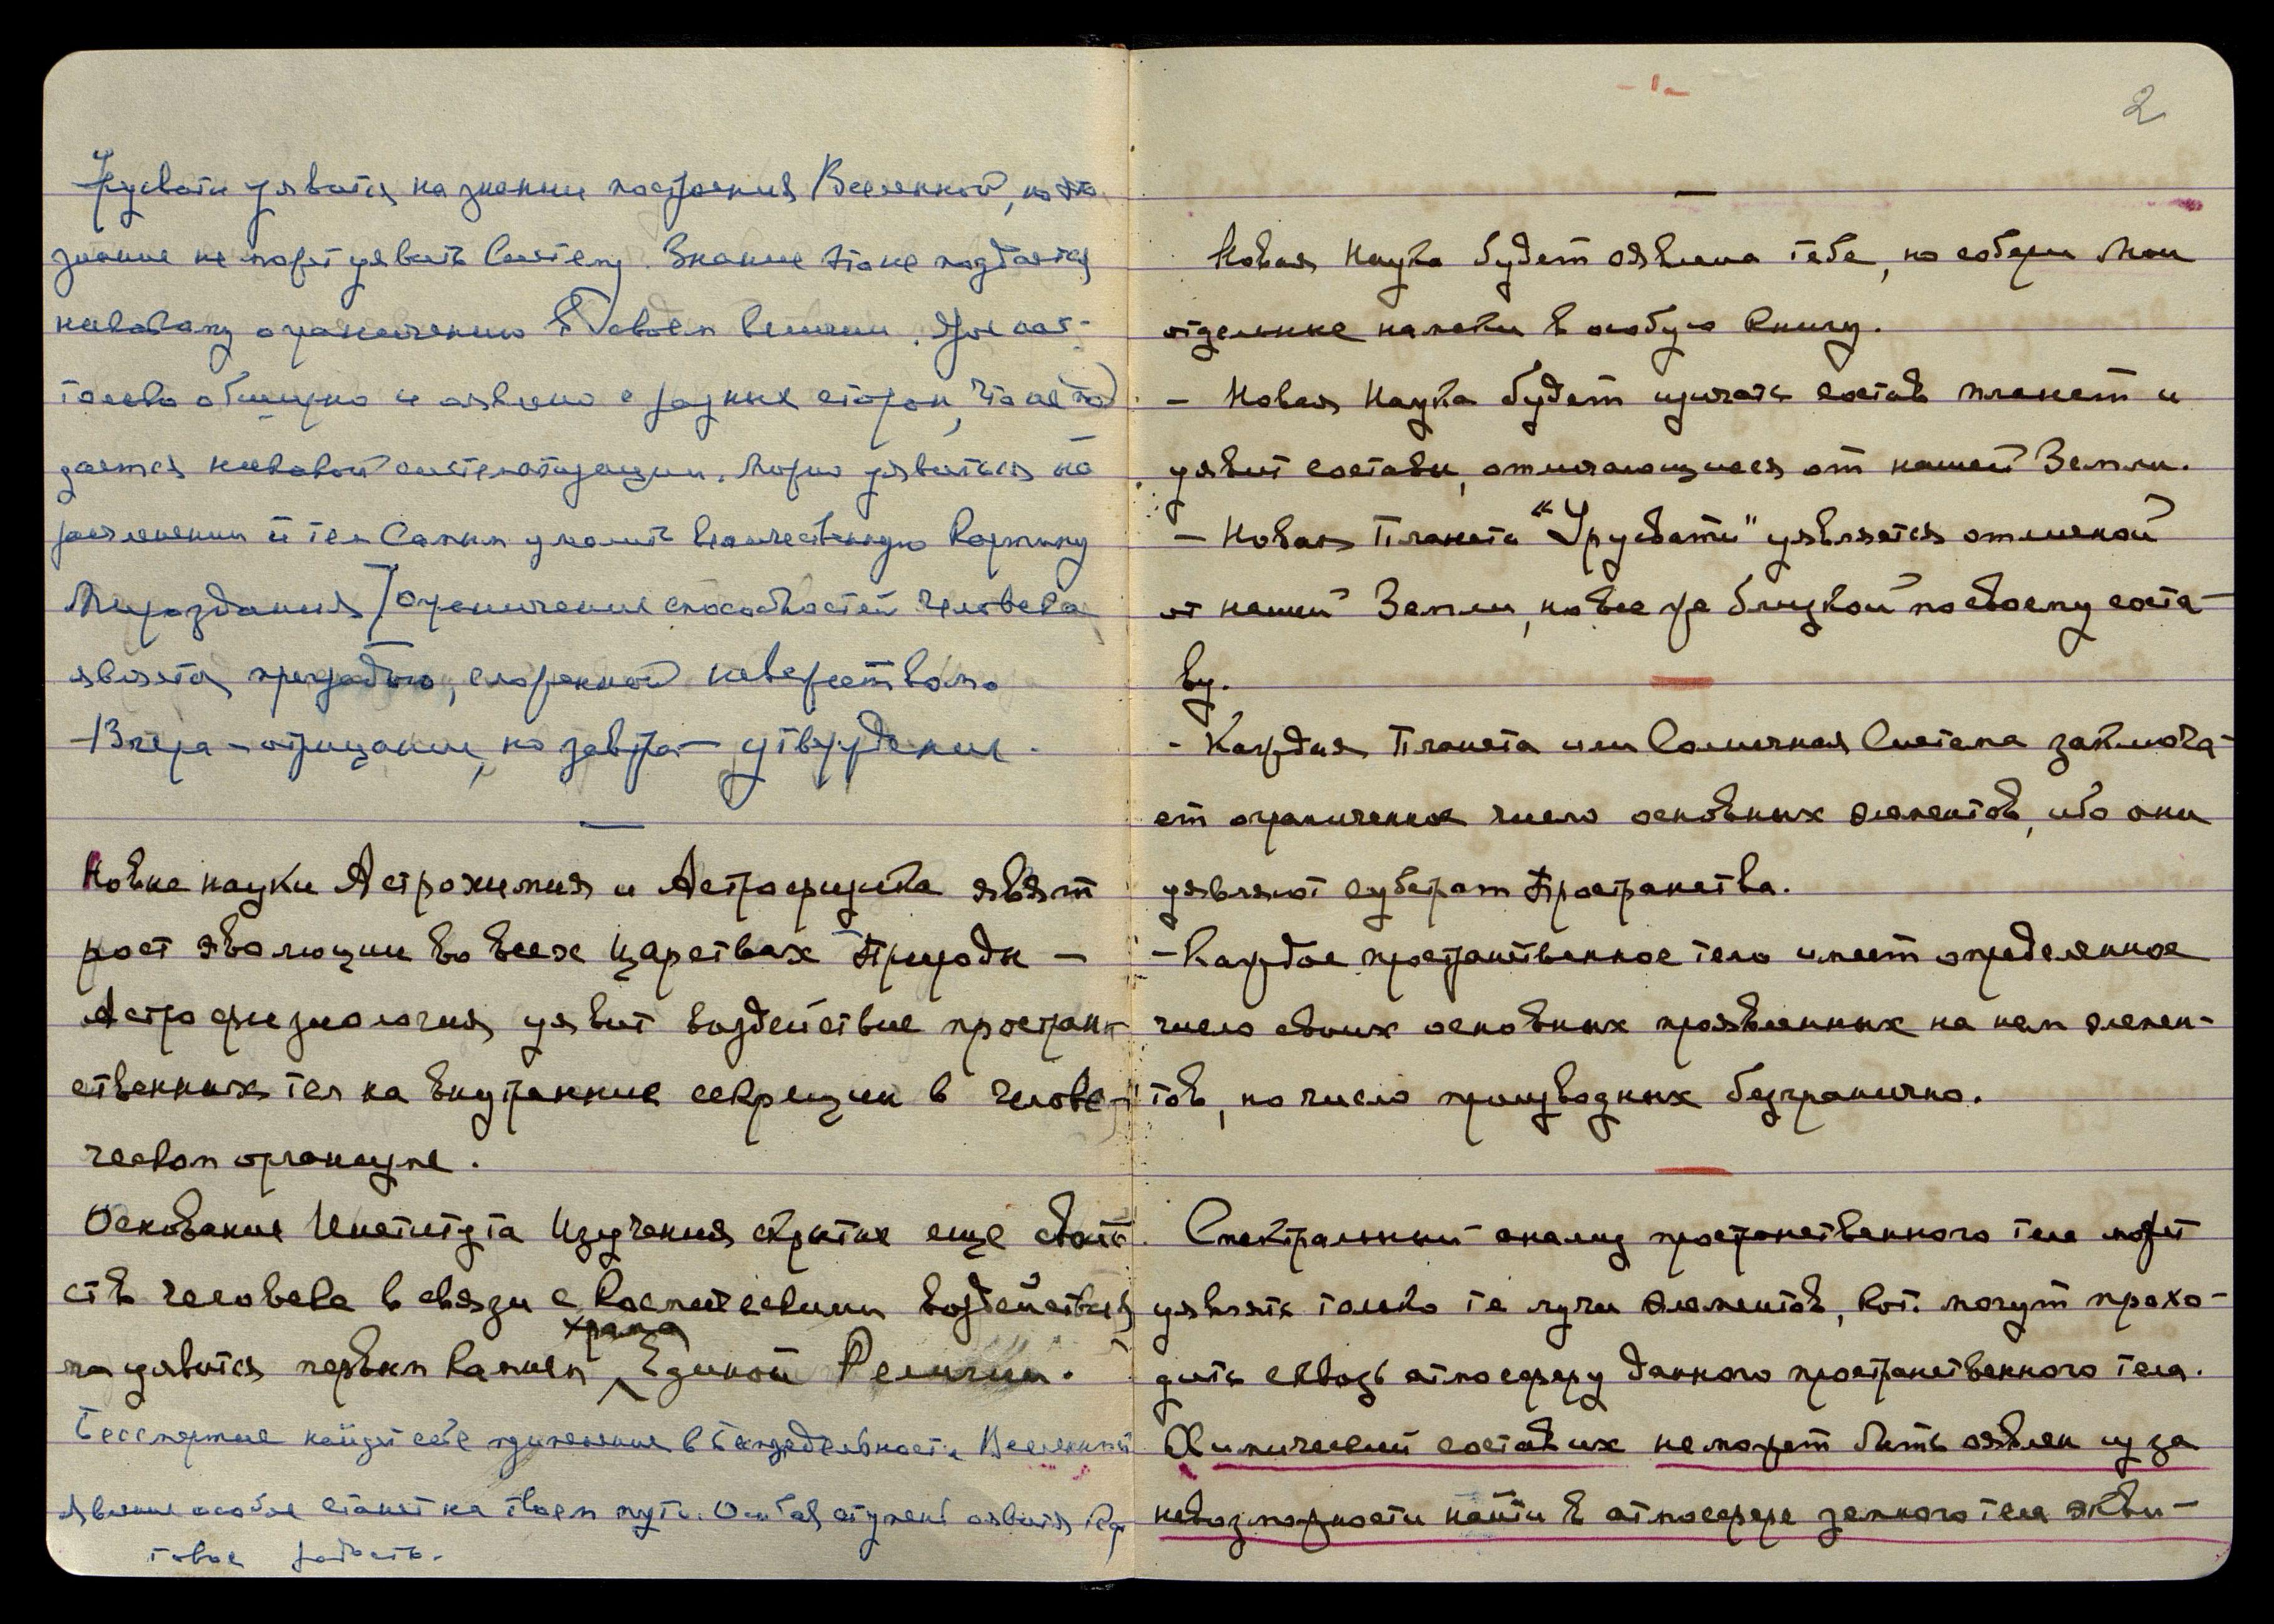 Урусвати уявится на знании построения Вселенной, но это
знание не может уявить Систему. Знание это не поддается
никакому ограничению в своем величии. Оно нас-
только обширно и оявлено с разных сторон, что не под
дается никакой систематизации. Можно уявиться на
расчленении и тем Самым умалить величественную Картину
Мироздания / Ограничение способностей человека
является преградою, сложенной невежеством
Вчера – отрицание, но завтра – утверждение.
Новые науки Астрохимия и Астрофизика явят
рост эволюции во всех царствах Природы –
Астрофизиология уявит воздействие простран-
ственных тел на внутренние секреции в челове-
ческом организме.
Основание Института Изучения скрытых еще свой
ств человека в связи с Космическими воздействия
храма
ми уявится первым камнем Единой Религии.
Бессмертие найдет себе применение в Беспредельности Вселенной
Явление особое станет на твоем пути. Особая ступень оявится
радость.
- 1 -
2
Новая Наука будет оявлена тебе, но собери Мои
отдельные намеки в особую книгу.
– Новая Наука будет изучать состав планет и
уявит составы, отличающиеся от нашей Земли.
– Новая Планета "Урусвати" уявляется отличной
от нашей Земли, но все же близкой по своему соста-
ву.
– Каждая Планета или Солнечная Система заключа-
ет ограниченное число основных элементов, ибо они
уявляют субстрат Пространства.
– Каждое пространственное тело имеет определенное
число своих основных проявленных на нем элемен-
тов, но число производных безгранично.
Спектральный анализ пространственного тела может
уявлять только те лучи элементов, кот. могут прохо-
дить сквозь атмосферу данного пространственного тела.
Химический состав их не может быть оявлен из за
невозможности найти в атмосфере земного тела экви-